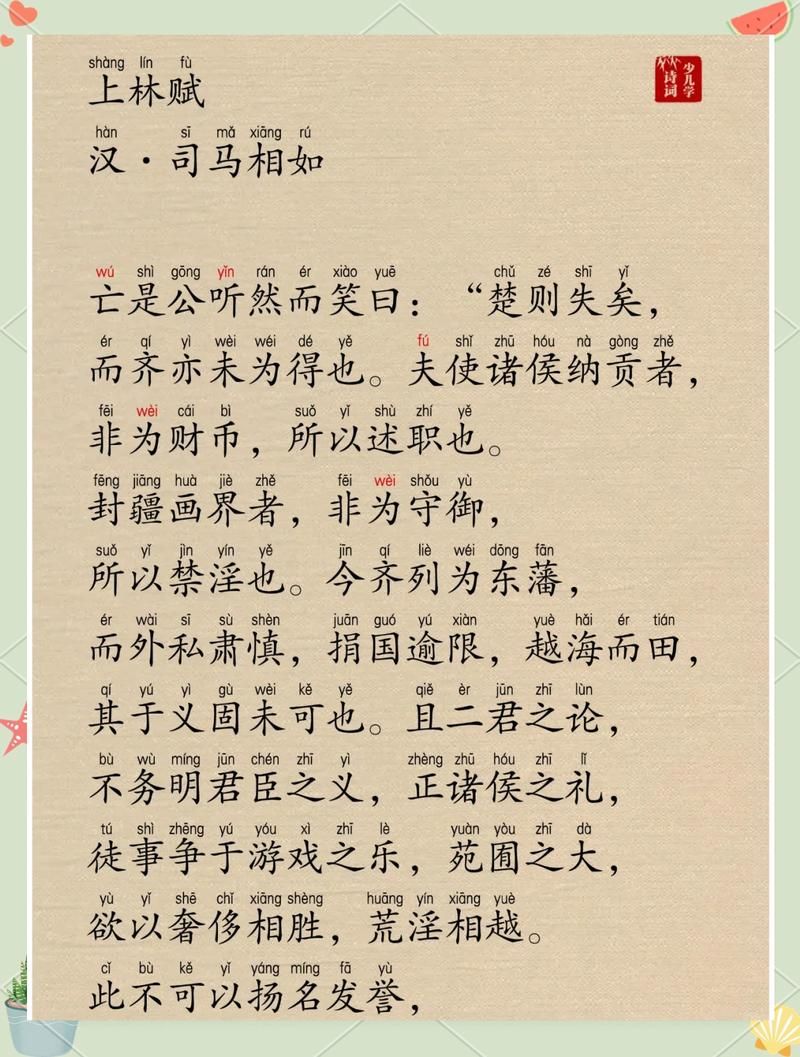 shàng lín fù
上林赋
少儿学
诗词
hàn sī mǎ xiāng rú
汉·司马相如
wú shì gōng yǐn rán ér xiào yuē chǔ zé shī yǐ
亡是公听然而笑曰：“楚则失矣，
ér qí yì wèi wéi dé yě fú shǐ zhū hóu nà gòng zhě
而齐亦未为得也。夫使诸侯纳贡者，
fēi wèi cái bì suǒ yǐ shù zhí yě
非为财币，所以述职也。
fēng jiāng huà jiè zhě fēi wèi shǒu yù
封疆画界者，非为守御，
suǒ yǐ jìn yín yě jīn qí liè wéi dōng fān
所以禁淫也。今齐列为东藩，
ér wài sī sù shèn juān guó yú xiàn yuè hǎi ér tián
而外私肃慎，捐国逾限，越海而田，
qí yú yì gù wèi kě yě qiě èr jūn zhī lùn
其于义固未可也。且二君之论，
bù wù míng jūn chén zhī yì zhèng zhū hóu zhī lǐ
不务明君臣之义，正诸侯之礼，
tú shì zhēng yú yóu xì zhī lè yuàn yòu zhī dà
徒事争于游戏之乐，苑囿之大，
yù yǐ shē chǐ xiāng shèng huāng yín xiāng yuè
欲以奢侈相胜，荒淫相越。
cǐ bù kě yǐ yáng míng fā yù
此不可以扬名发誉，